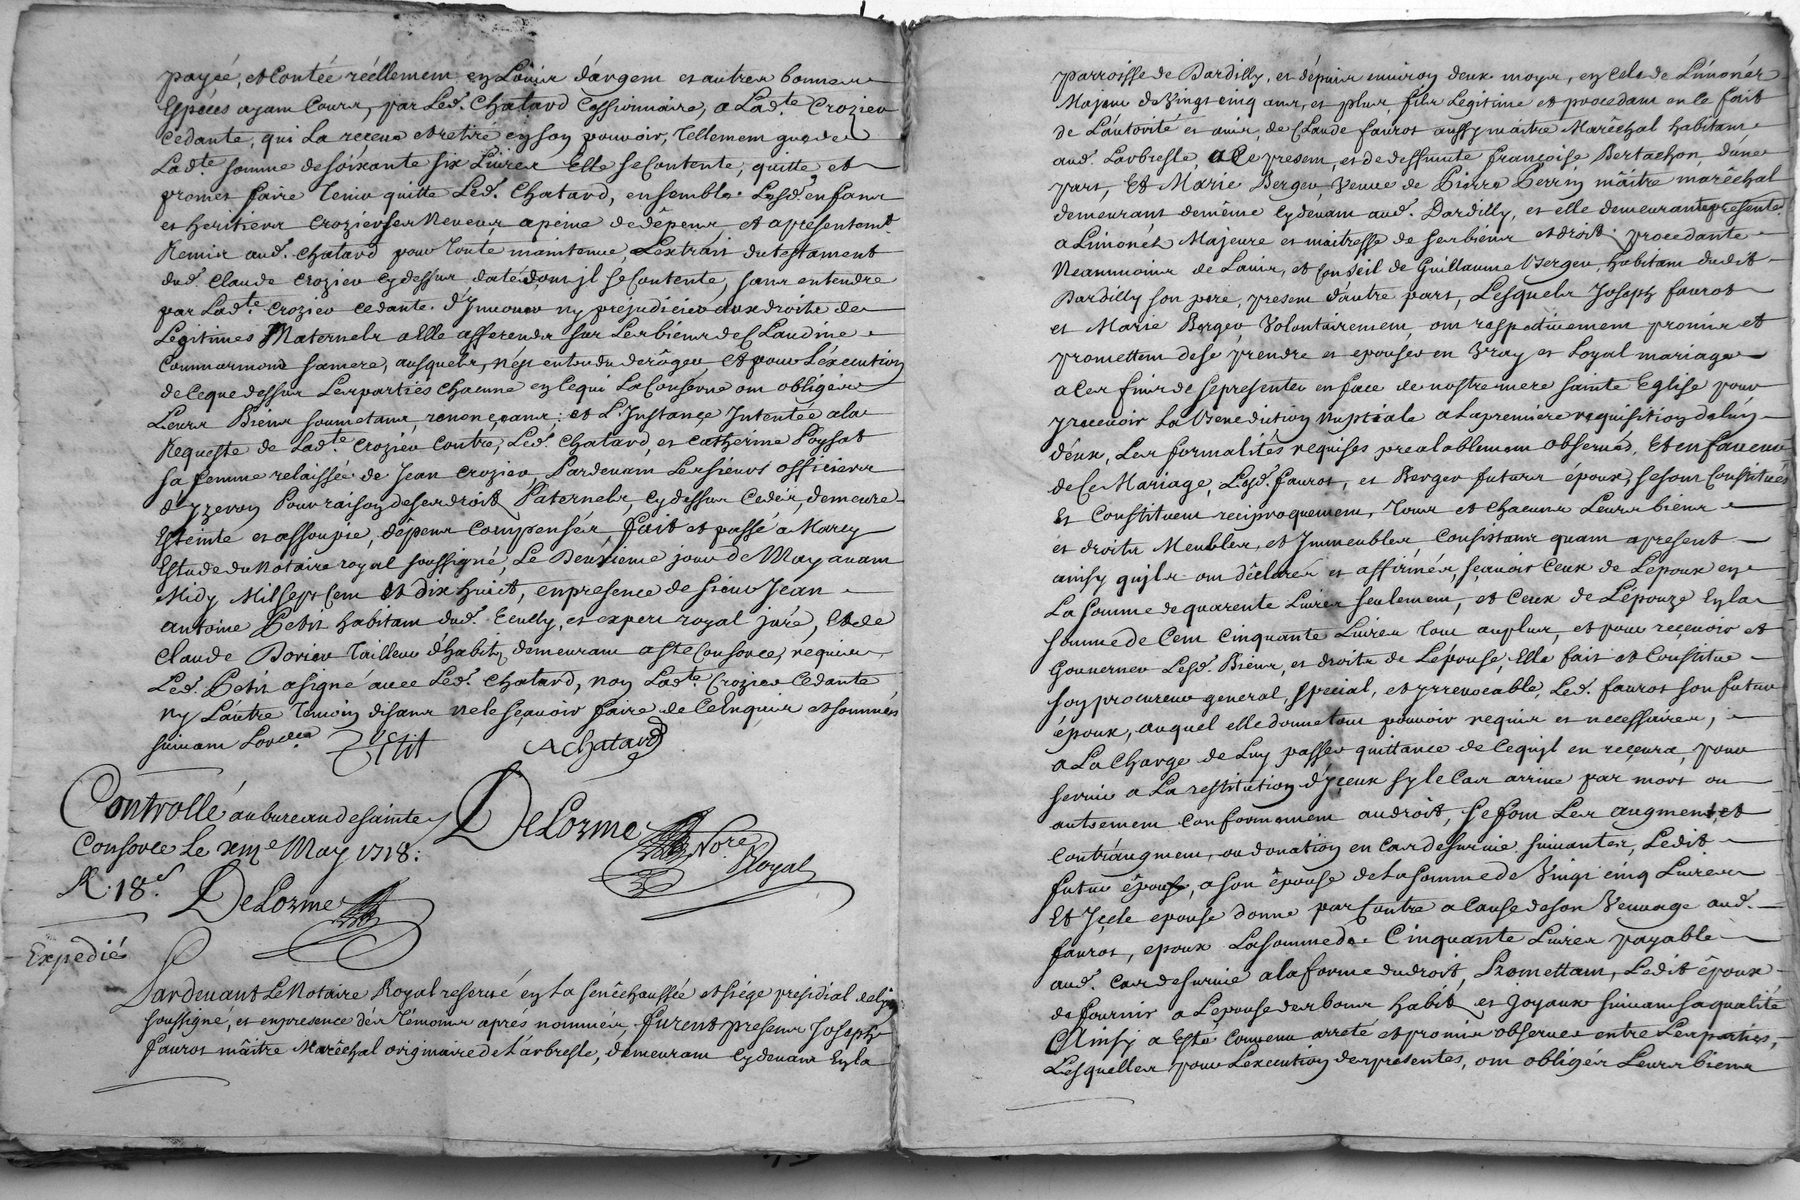 payée, et Contée réellement en Louis d'argent et autres bonnes
Espéces ayant Cours, par Led. Chatard Cessionnaire, a Lad.te Crozier
Cedante, qui La reçeue et retire en son pouvoir, Tellement que de
Lad.te somme de soixante six Livres Elle se Contente, quitte et
promet faire Tenir quitte Led. Chatard, ensemble Lesd. enfans
et heritiers Crozier ses Neveux a peine de dêpens, et a présentem.t
Remis aud. Chatard pour toute maintenue, L'extrait du testament
dud. Claude Crozier cy dessus daté dont jl se Contente, sans entendre
par Lad.te Crozier Cedante d'Jnnover ny préjudicier aux droits de
Légitimes Maternels a elle afferends sur Les biens de Claudine
sa mere, ausquels, n'est entendu derôger Et pour L'éxecution
de Ceque dessus Les parties chacune en Ce qui La Conserne ont obligé
Leurs Biens soumetans, renonçeans : et L'Jnstançe Jntentée a la
Requeste de Lad.te Crozier Contre, Led. Chatard, et Catherine Poysat
sa femme relaissée de Jean Crozier, Pardevant Les sieurs officiers
d'yzeron Pour raison de ses droits Paternels, Cy dessus Cedés, demeure
Esteinte et assoupie, dêpens Compensés fait et passé a Marcy
Estude du Notaire royal soussigné, Le Deuxieme jour de May avant
Midy Mil sept Cent Et dix huict, en presence de sieur Jean
antoine Petit habitant dud. Ecully, et expert royal juré, Et de
Claude Borier Tailleur d'habits demeurant a ste Consorce, requis
Led. Petit a signé avec Led. Chatard, non Lad.te Crozier Cedante
ny L'autre Temoin disans ne le sçavoir faire de Ce Enquis et sommés
suivant L'ord.ce Petit AChatard
Controllé au bureau de sainte
Consorce Le xme May 1718 :
R. 18 s. DeLorme
DeLorme No.re Royal
Expedié
Pardevant Le Notaire Royal reservé en La senêchaussée et siége présidial de Lyon
soussigné, et en presence dés Témoins aprés nommés, furent presens Joseph
faurot maître Maréchal originaire de L'arbresle, demeurant Cy devant En La
parroisse de Dardilly, et dépuis environ deux moys, en Cele de Limonés
Majeur de Vingt cinq ans, et plus, fils Legitime et procedant en le fait
de L'autorité et avis, de Claude faurot aussy maitre Marêchal habitant
aud. Larbresle, a Ce present, et de deffuncte françoise Bertachon, d'une
part, Et Marie Berger Veuve de Pierre Perrin mâitre marêchal
demeurant de même Cy devant aud. Dardilly, et elle demeurante presente.t
a Limonés Majeure et maitresse de ses biens et droits procedante
Neanmoins de L'avis, et Conseil de Guillaume Berger habitant dudit
Dardilly son pere, present d'autre part, Lesquels Joseph faurot
et Marie Berger Volontairement ont respectivement promis et
promettent de se prendre et epouser en Vray et Loyal mariage
a Ces fins de se presenter en face de nostre mere sainte Eglise pour
y recevoir La Benediction Nuptiale a La premiere requisition de L'un
d'eux, Les formalités requises prealablement observées, Et en faveur
de Ce Mariage, Lesd. faurot, et Berger futurs époux, se sont Constitués
Et Constituent reciproquement, Tous et chacuns Leurs biens
et droits Meubles, et Jmmeubles Consistans quant a present
ainsy qujls ont dêclarés et affirmés, sçavoir Ceux de L'époux en
La somme de quarente Livres seulement, et Ceux de L'épouze En La
somme de Cent Cinquante Livres Tout au plus, et pour recevoir et
Gouverner Lesd. Biens, et droits de L'épouse, Elle fait et Constitue
son procureur general, special, et jrrevocable, Led. faurot son futur
époux, auquel elle donne tout pouvoir requis et necessaires,
a La Charge de Luy passer quittance de Ce qujl en reçevra, pour
servir a La restitution d'jceux sy le Cas arrive par mort ou
autrement Conformement au droit, se font Les augment et
Contr'augment, ou donation en Cas de survie suivantes, Ledit
futur épouse, a son épouse de La somme de Vingt cinq Livres
Et Jçele epouse donne par Contre a Cause de son Veuvage aud.
faurot, epoux La somme de Cinquante Livres payable
aud. Cas de survie a la forme du droit, Promettant, Ledit époux
de fournir a L'epouse des bons habits, et joyaux suivant sa qualité
Ainsy a Esté Convenu arreté et promis observer entre Les parties,
Lesquelles pour L'execution des présentes, ont obligés Leurs biens